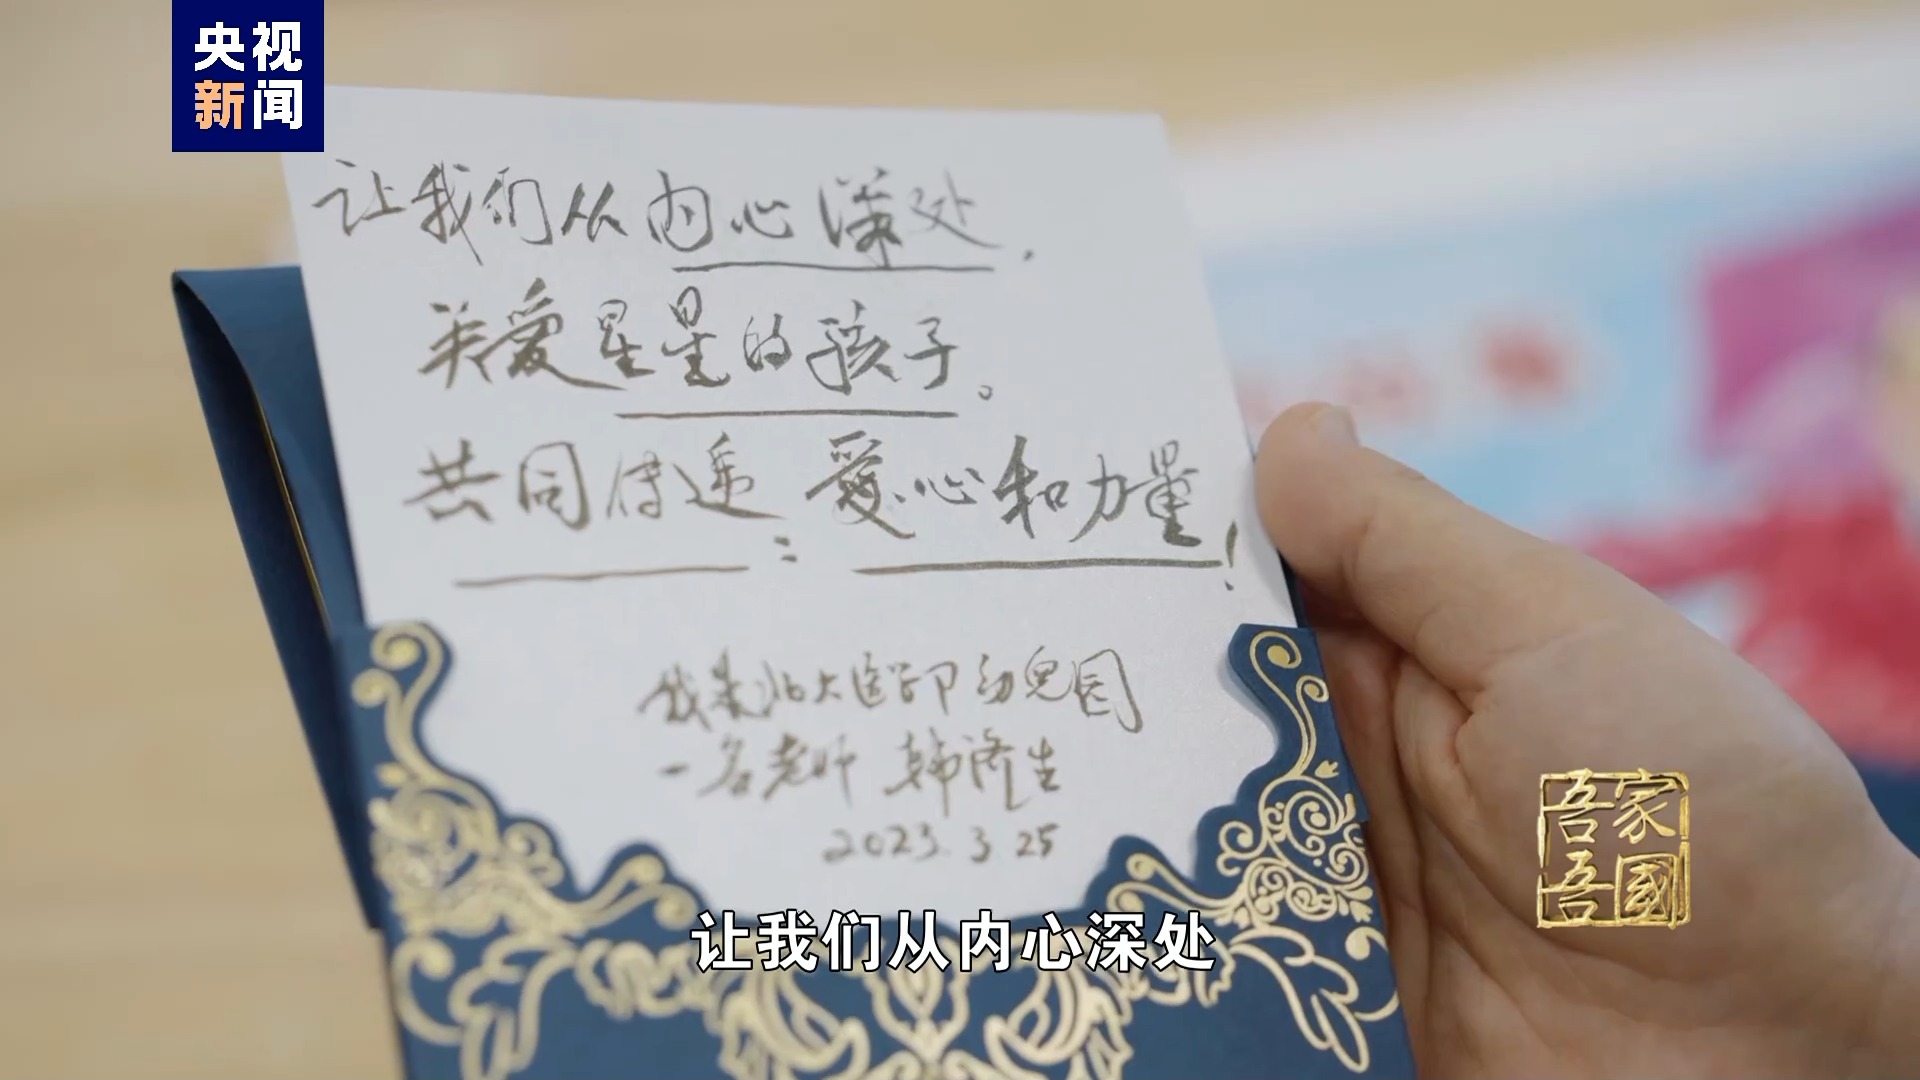 央视
新闻
让我们从内心深处，
关爱星星的孩子。
共同传递：爱心和力量！
我是北大医学部幼儿园
一名老师 韩济生
2023.3.25
吾家
吾國
让我们从内心深处